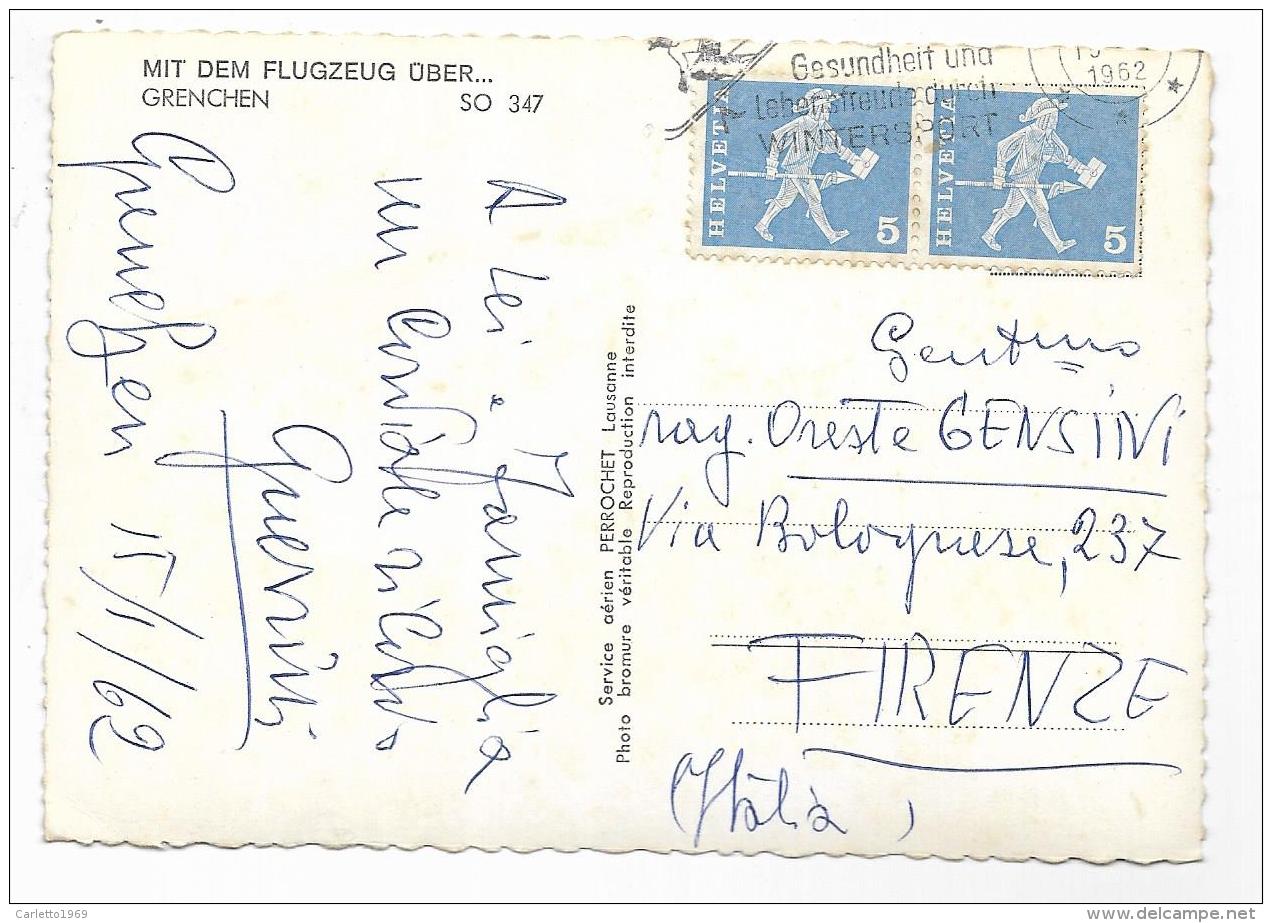 MIT DEM FLUGZEUG ÜBER...
GRENCHEN SO 347
Gesundheit und
Lebensfreude durch
WINTERSPORT
1962
HELVETIA 5
HELVETIA 5
Grenchen
A lei e famiglia
un cordiale ricordo
Service aérien PERROCHET Lausanne
Photo bromure véritable Reproduction interdite
rag. Oreste GENSINI
Via Bolognese, 237
FIRENZE
(Italia)
Carletto1969
delcampe.net